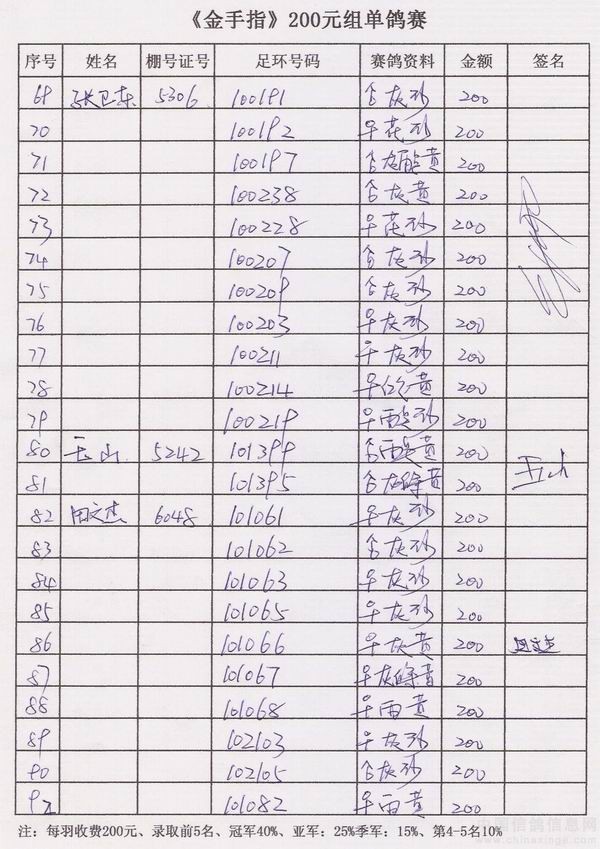 《金手指》200元组单鸽赛
序号 姓名 棚号证号 足环号码 赛鸽资料 金额 签名
69 张卫东 5306 100191 合灰砂 200
70 100192 羊花砂 200
71 100197 合灰 黄 200
72 100238 合灰黄 200
73 100228 羊花砂 200
74 100207 合灰砂 200
75 100209 合灰砂 200
76 100203 羊灰砂 200
77 100211 羊灰砂 200
78 100214 黄 200
79 100219 砂 200
80 王山 5242 101399 黄 200 王山
81 101395 合灰 黄 200
82 田文杰 6048 101061 羊灰砂 200
83 101062 合灰砂 200
84 101063 羊灰砂 200
85 101065 羊灰砂 200
86 101066 羊灰黄 200 田文杰
87 101067 羊灰 黄 200
88 101068 羊雨黄 200
89 102103 羊灰砂 200
90 102105 合灰砂 200
101082 羊雨黄 200
注：每羽收费200元、录取前5名、冠军40%、亚军：25%季军：15%、第4-5名10%
中国信鸽信息网
www.chinaxinge.com